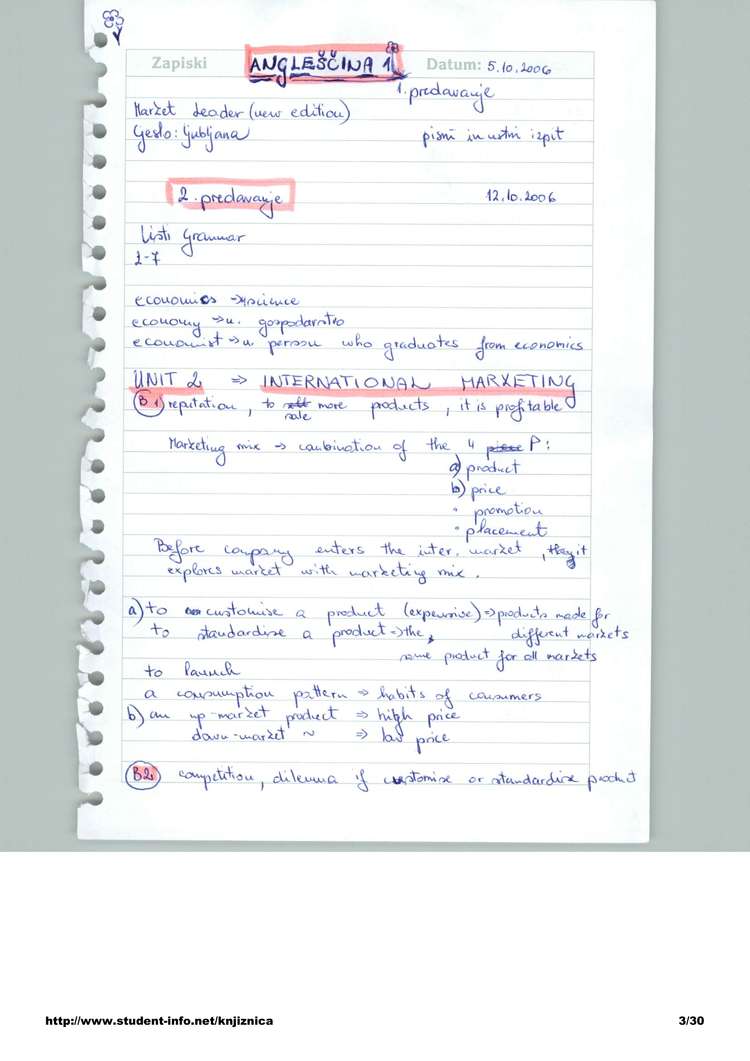 Zapiski ANGLEŠČINA 1 Datum: 5.10.2006
1. predavanje
Market Leader (new edition)
Geslo: ljubljana pismi in ustni izpit
2. predavanje 12.10.2006
Listi Grammar
1-7
economics → science
economy → n. gospodarstvo
economist → n. person who graduates from economics
UNIT 2 ⇒ INTERNATIONAL MARKETING
B1 reputation, to sale more products, it is profitable
Marketing mix → combination of the 4 piece P:
a) product
b) price
• promotion
• placement
Before company enters the inter. market, they it
explores market with marketing mix.
a) to customise a product (expensive) ⇒ products made for
to standardise a product ⇒ the different markets
same product for all markets
to launch
a consumption pattern ⇒ habits of consumers
b) an up-market product ⇒ high price
down-market ~ ⇒ low price
B2 competition, dilemma if customise or standardize product
http://www.student-info.net/knjiznica 3/30